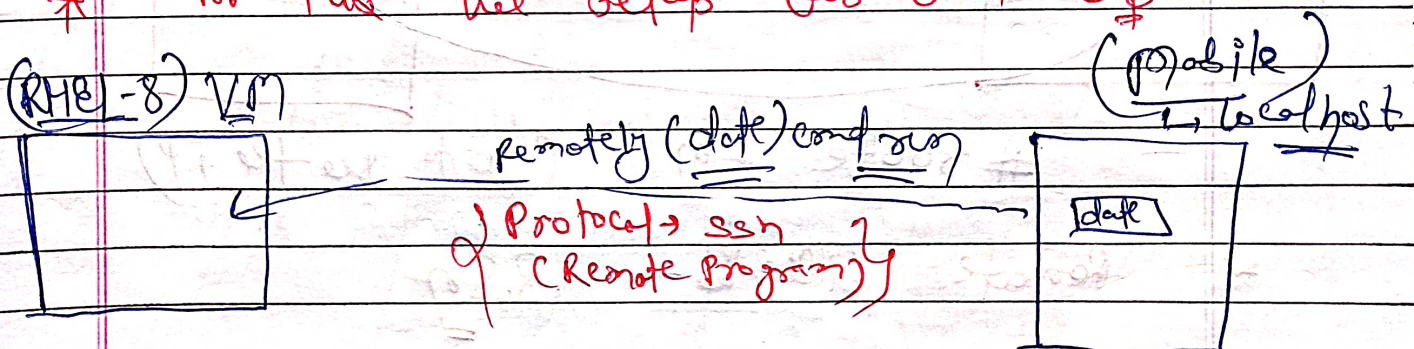 (RHEL-8) VM
(mobile)
↳ localhost
Remotely (date) cmd run
date
{ Protocol → ssh
(Remote Program) }